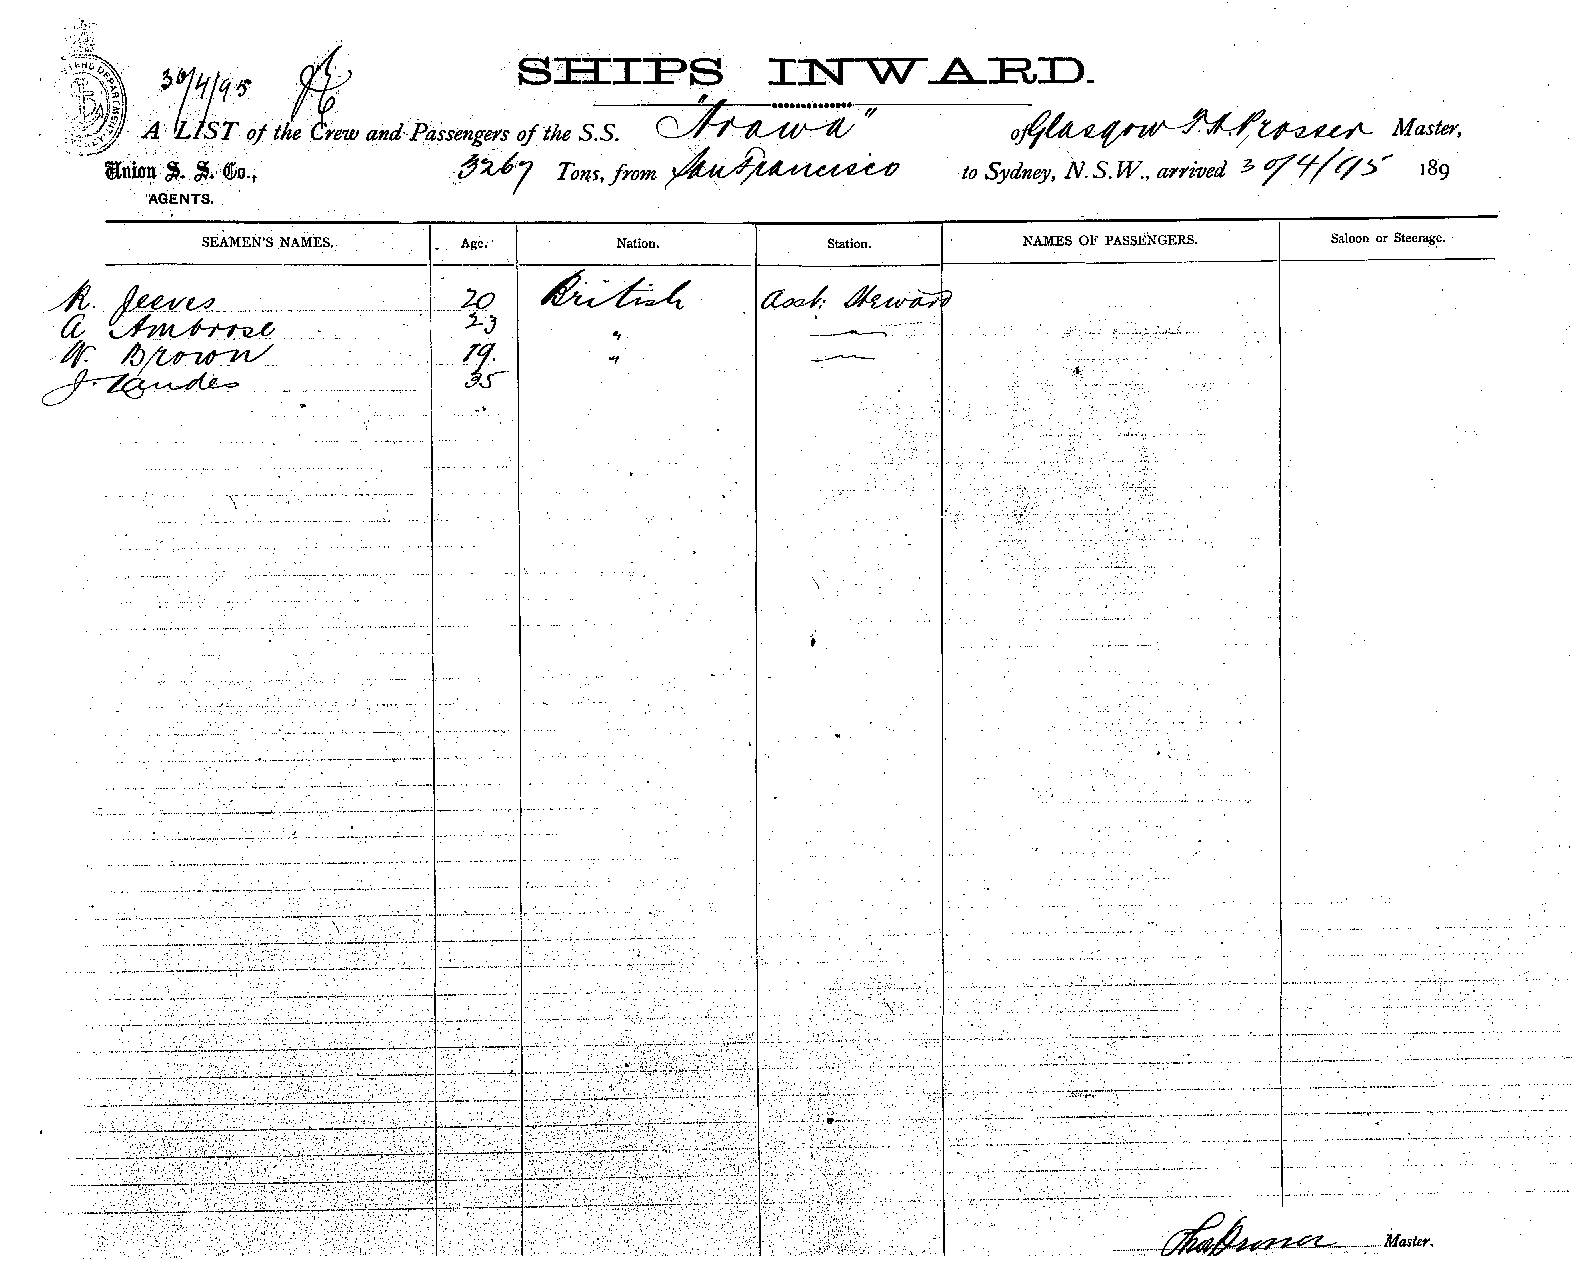 SHIPS INWARD.
30/4/95
A LIST of the Crew and Passengers of the S.S. "Arawa" of Glasgow T. A. Prosser Master,
Union S. S. Co., 3267 Tons, from San Francisco to Sydney, N.S.W., arrived 30/4/95 189
AGENTS.
SEAMEN'S NAMES. Age. Nation. Station. NAMES OF PASSENGERS. Saloon or Steerage.
R. Jeeves 20 British Asst. Steward
A Ambrose 23 " —
W. Brown 19. " —
J. 35
Master.